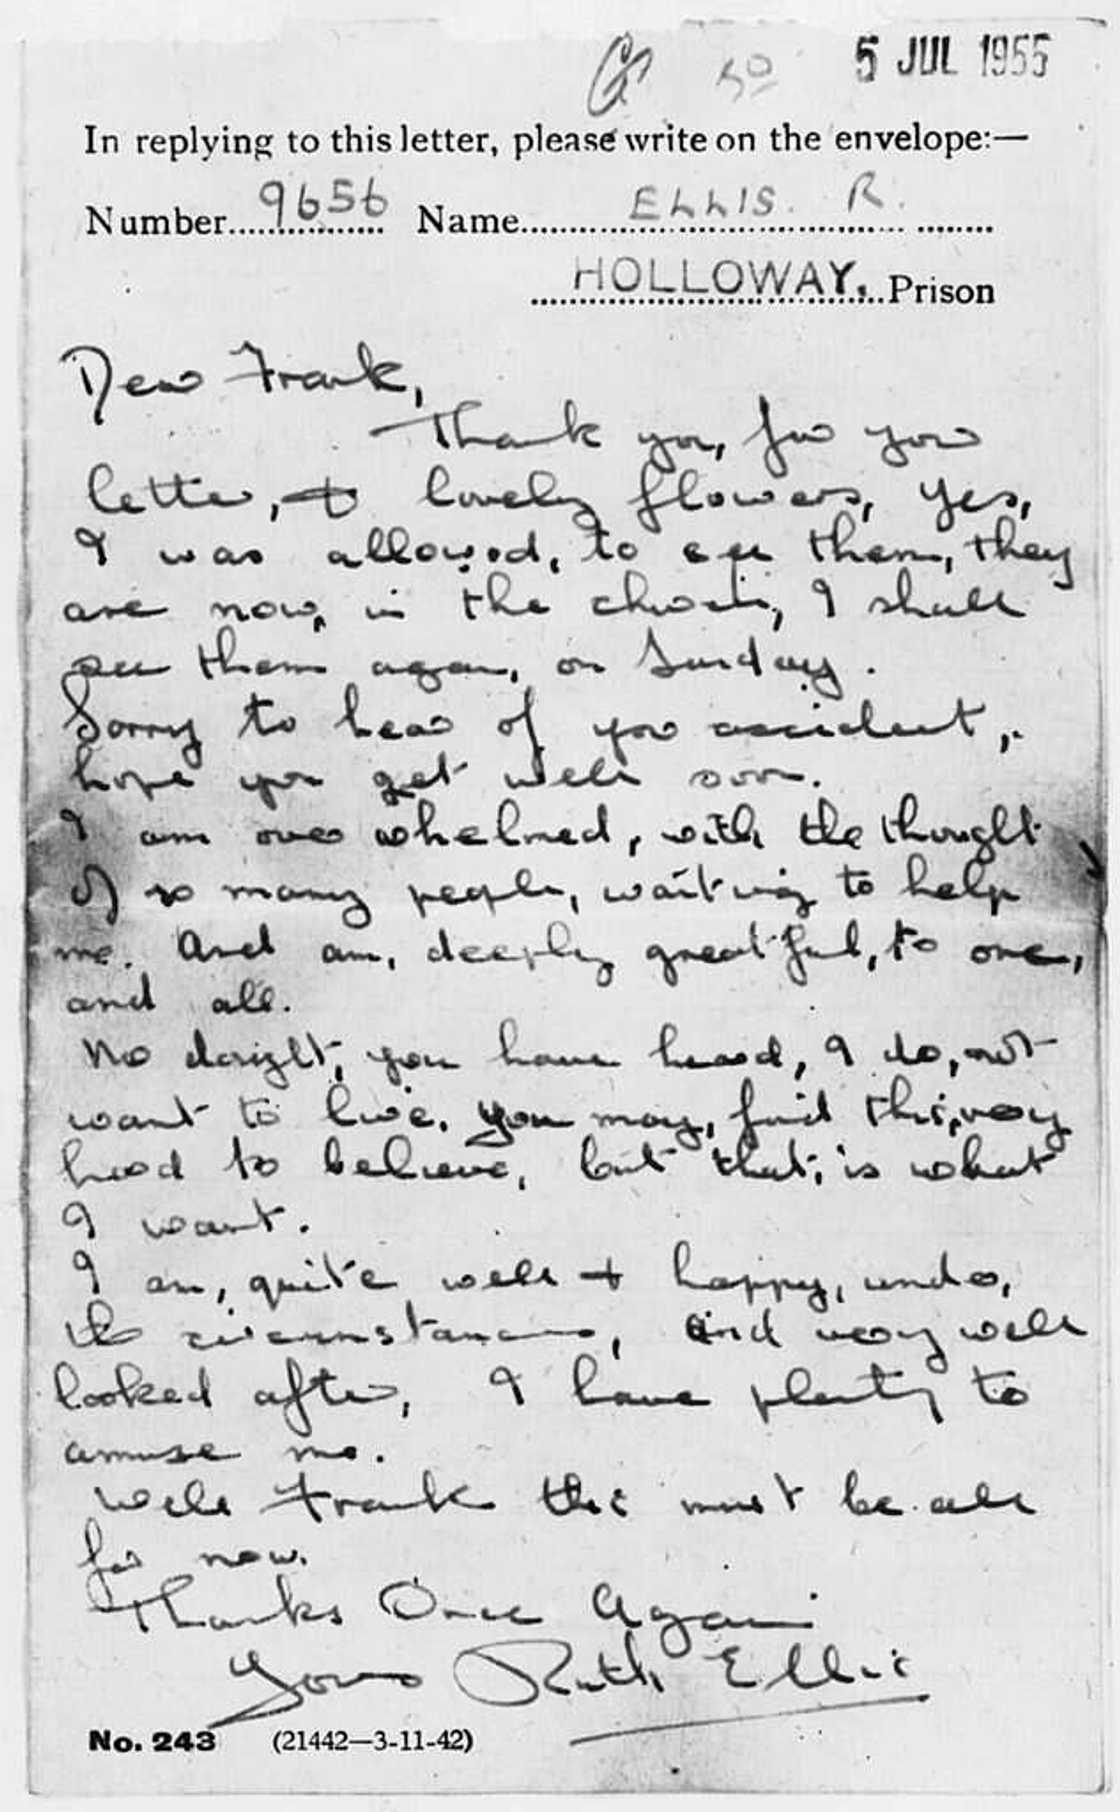 5 JUL 1955
In replying to this letter, please write on the envelope:—
Number 9656 Name ELLIS. R.
HOLLOWAY. Prison
Dear Frank,
Thank you, for your
letter, + lovely flowers, Yes,
I was allowed, to see them, they
are now, in the church, I shall
see them again, on Sunday.
Sorry to hear of your accident,
hope you get well soon.
I am over whelmed, with the thought
of so many people, waiting to help
me. And am, deeply greatful, to one,
and all.
No dought, you have heard, I do, not
want to live. You may, find this, very
hard to believe, but that, is what
I want.
I am, quite well + happy, under,
the circumstances, and very well
looked after, I have plenty to
amuse me.
Well Frank this must be all
for now.
Thanks Once Again
Yours Ruth Ellis
No. 243 (21442—3-11-42)